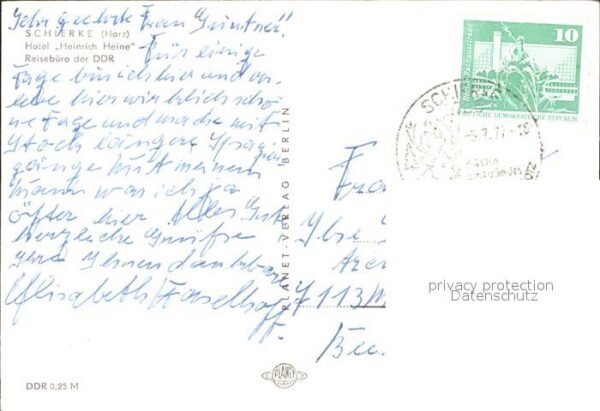 Sehr geehrte Frau Günther!!
SCHIERKE (Harz)
Hotel „Heinrich Heine"
Reisebüro der DDR
Für einige
Tage bin ich hier und ver-
lebe hier wirklich schö-
ne Tage und mache mit
Stock längere Spazier
gänge. Mit meinem
Mann war ich ja
öfter hier. Alles Gute
herzliche Grüße
Ihre Ihnen dankbare
Elisabeth Haselhoff
PLANET-VERLAG BERLIN
10
DEUTSCHE DEMOKRATISCHE REPUBLIK
SCHIERKE
Frau
Ilse
1113
privacy protection
Datenschutz
PLANET
DDR 0,25 M